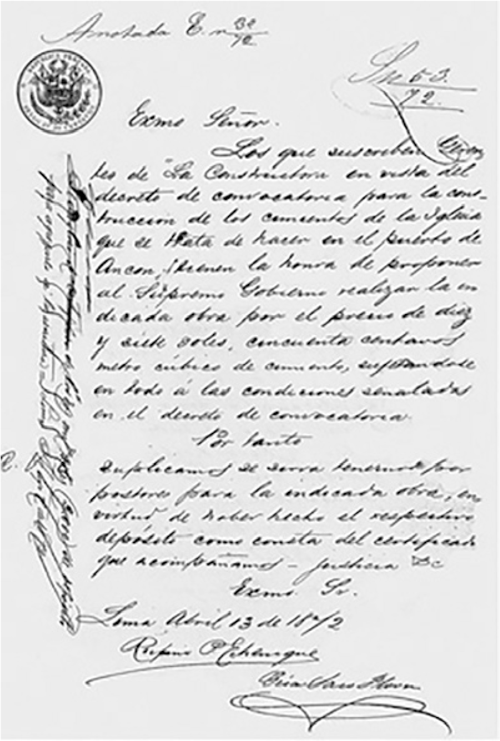 Anotada E. n 32/72
Sn 53.
72.
Exmo Señor.
Los que suscriben Geren
tes de "La Constructora en vista del
decreto de convocatoria para la cons-
truccion de los cimientos de la Iglesia
que se trata de hacer en el puerto de
Ancon, tienen la honra de proponer
al Supremo Gobierno realizar la in
dicada obra por el precio de diez
y siete soles, cincuenta centavos
metro cúbico de cimiento, sujetandose
en todo á las condiciones señaladas
en el decreto de convocatoria.
Por tanto
suplicamos se sirva tenernos por
postores para la indicada obra, en
virtud de haber hecho el respectivo
depósito como consta del certificado
que acompañamos - justicia &c
Exmo. Sr.
Lima Abril 13 de 1872
Rufino P. Echenique